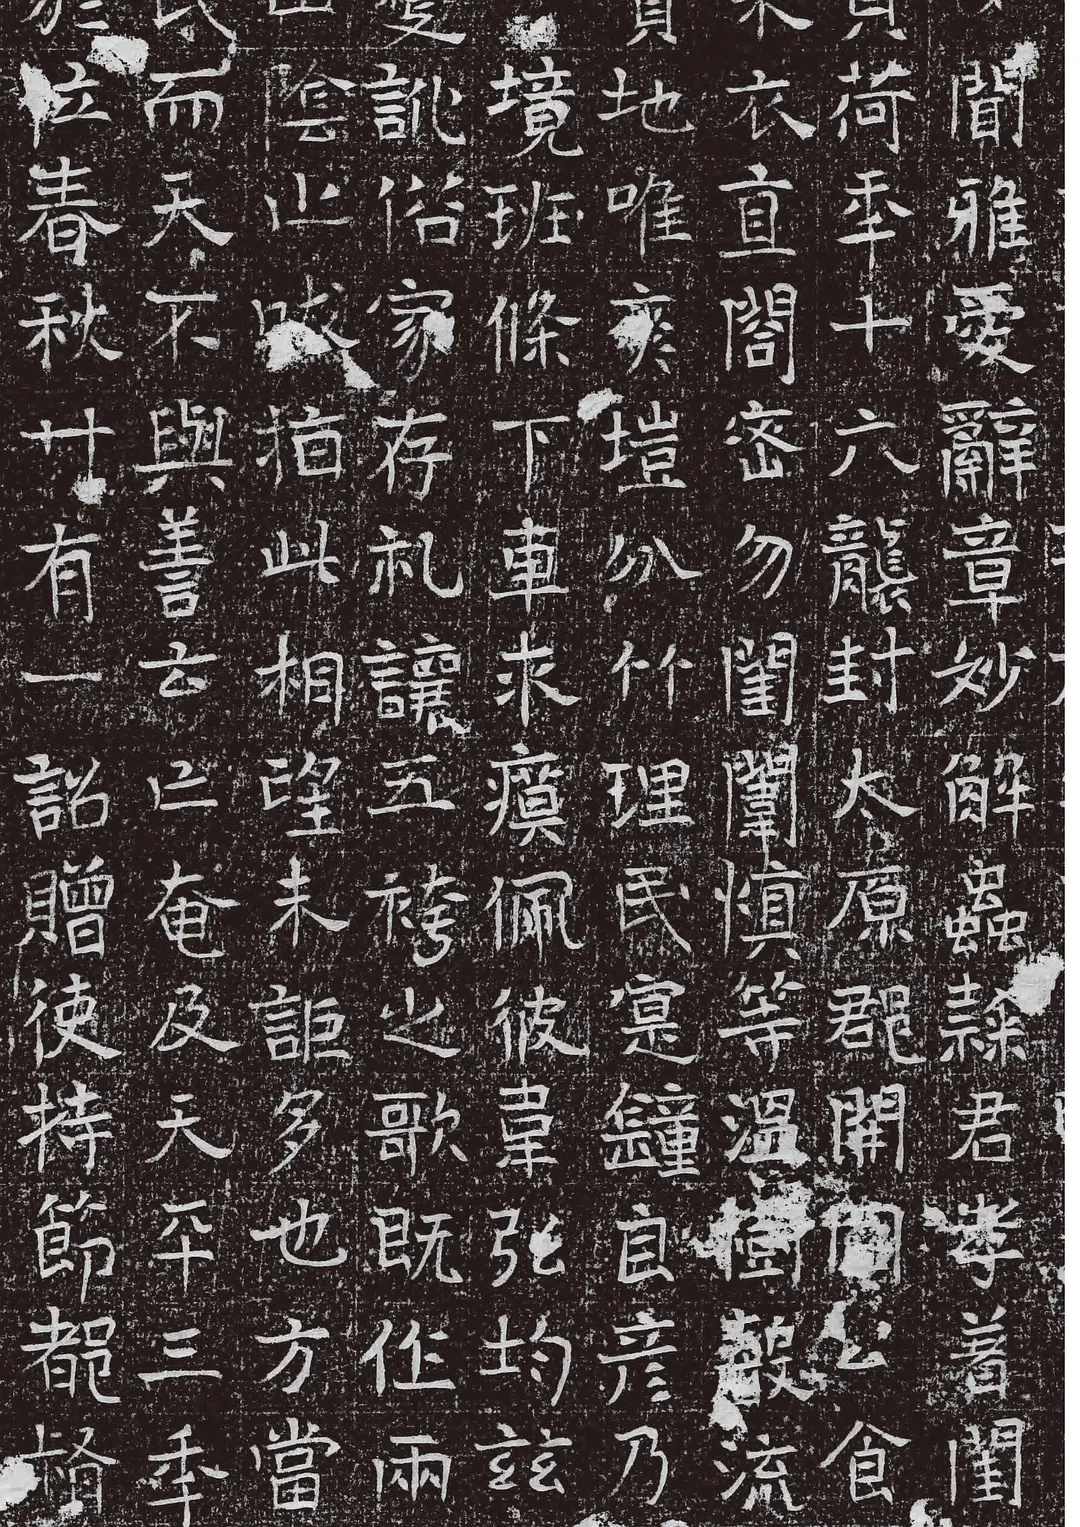 聞雅愛辭章妙解蟲隸君孝著閨
荷年十六襲封太原郡開國公食
衣直閤密勿閨闈慎等溫樹聲流
地唯爽塏分竹理民寔鍾自彦乃
境班條下車求瘼佩彼韋弦均茲
變訛俗家存礼讓五袴之歌既作兩
陰止映猶此相望未詎多也方當
民而天不與善云亡奄及天平三年
於位春秋廿有一詔贈使持節都督